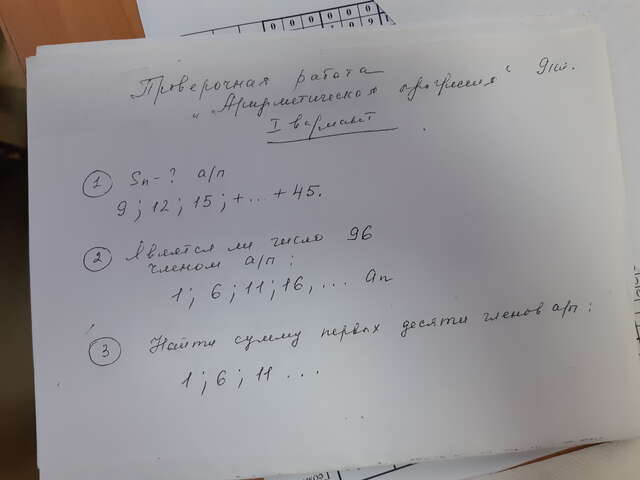 Проверочная работа
"Арифметическая прогрессия" 9 кл.
I вариант
1 Sn - ? а/п
9 ; 12 ; 15 ; + ... + 45.
2 Является ли число 96
членом а/п :
1 ; 6 ; 11 ; 16 , ... an
3 Найти сумму первых десяти членов а/п :
1 ; 6 ; 11 ...